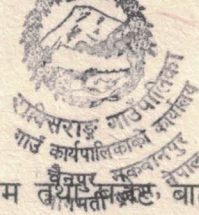 राक्सिराङ्ग गाउँपालिका
गाउँ कार्यपालिकाको कार्यालय
चैनपुर, मकवानपुर
बागमती प्रदेश, नेपाल
म तथा बजेट, बा